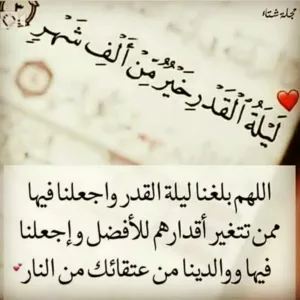 مجلة شتاء
لَيْلَةُ ٱلْقَدْرِ خَيْرٌ مِّنْ أَلْفِ شَهْرٍ
اللهم بلغنا ليلة القدر واجعلنا فيها
ممن تتغير أقدارهم للأفضل وإجعلنا
فيها ووالدينا من عتقائك من النار